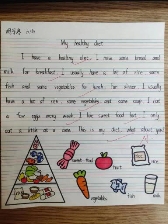 My healthy diet
I have a healthy diet. I now some bread and
milk for breakfast. I usually have a lot of rice, some
fish and some vegetables for lunch. For dinner, I usually
have a lot of rice, some vegetables and some soup. I eat
a few eggs every week. I like sweet food but I only
eat a little at a time. This is my diet, what about you?
sweet food
fruit
rice
vegetables
fish